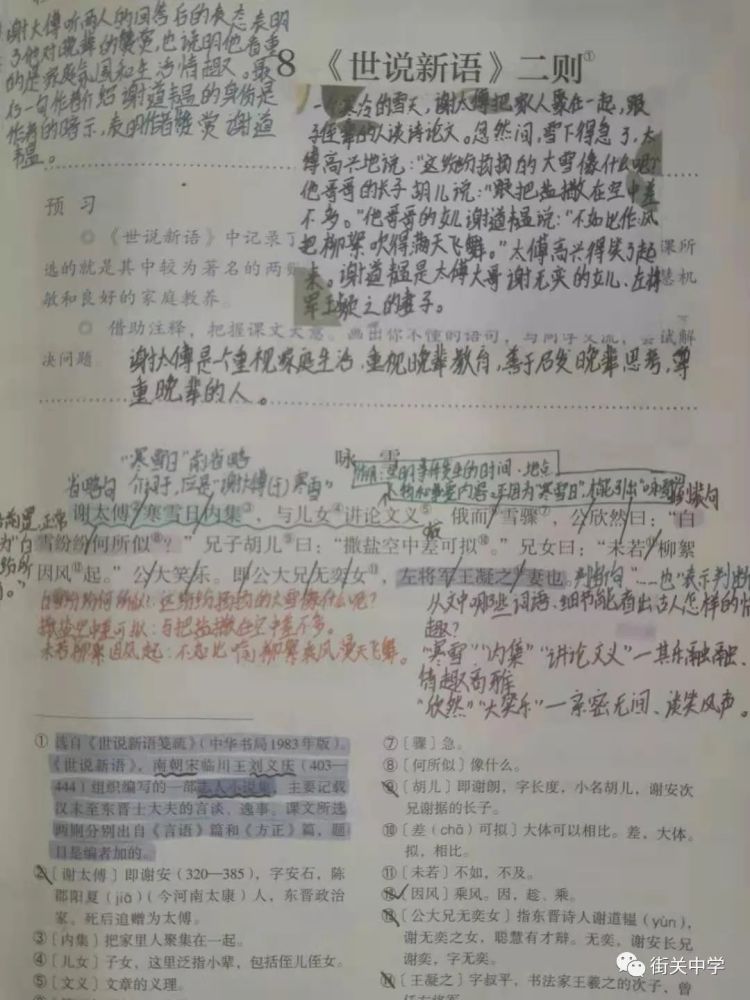 谢太傅听两人的回答后的表态表明
了他对晚辈的赞赏,也说明他看重
的是家庭氛围和生活情趣。最
后一句作者介绍谢道韫的身份是
作者的暗示,表明作者赞赏谢道
韫。
8 《世说新语》二则①
一个寒冷的雪天,谢太傅把家人聚在一起,跟
子侄辈的人谈诗论文。忽然间,雪下得急了,太
傅高兴地说:“这纷纷扬扬的大雪像什么呢?”
他哥哥的长子胡儿说:“跟把盐撒在空中差
不多。”他哥哥的女儿谢道韫说:“不如比作风
把柳絮吹得满天飞舞。”太傅高兴得笑了起
来。谢道韫是太傅大哥谢无奕的女儿、左将
军王凝之的妻子。
预 习
◎ 《世说新语》中记录了
课所
选的就是其中较为著名的两则
慧机
敏和良好的家庭教养。
◎ 借助注释,把握课文大意。画出你不懂的语句,与同学交流,尝试解
决问题。
谢太傅是个重视家庭生活、重视晚辈教育,善于启发晚辈思考,尊
重晚辈的人。
咏 雪
“寒雪日”前省略
省略句 介词于,应是“谢太傅(于)寒雪”
作用:表明事件发生的时间、地点
人物和主要内容。
倒装句
谢太傅②寒雪日内集③,与儿女④讲论文义⑤。俄而⑥雪骤⑦,公欣然曰:“白
雪纷纷何所似⑧?”兄子胡儿⑨曰:“撒盐空中差可拟⑩。”兄女曰:“未若⑪柳絮
因风⑫起。”公大笑乐。即公大兄无奕女⑬,左将军王凝之⑭妻也。
判断句 “……也”表示判断
白雪纷纷何所似:这纷纷扬扬的大雪像什么呢?
撒盐空中差可拟:与把盐撒在空中差不多。
未若柳絮因风起:不如比喻柳絮乘风漫天飞舞。
从文中哪些词语、细节能看出古人怎样的情
趣?
“寒雪”“内集”“讲论文义”—其乐融融、
情趣高雅
“欣然”“大笑乐”—亲密无间、谈笑风声。
① 选自《世说新语笺疏》(中华书局1983年版)。
《世说新语》,南朝宋临川王刘义庆(403—
444)组织编写的一部志人小说集,主要记载
汉末至东晋士大夫的言谈、逸事。课文所选
两则分别出自《言语》篇和《方正》篇,题
目是编者加的。
②〔谢太傅〕即谢安(320—385),字安石,陈
郡阳夏(jiǎ)(今河南太康)人,东晋政治
家。死后追赠为太傅。
③〔内集〕把家里人聚集在一起。
④〔儿女〕子女,这里泛指小辈,包括侄儿侄女。
⑤〔文义〕文章的义理。
⑦〔骤〕急。
⑧〔何所似〕像什么。
⑨〔胡儿〕即谢朗,字长度,小名胡儿,谢安次
兄谢据的长子。
⑩〔差(chā)可拟〕大体可以相比。差,大体。
拟,相比。
⑪〔未若〕不如,不及。
⑫〔因风〕乘风。因,趁、乘。
⑬〔公大兄无奕女〕指东晋诗人谢道韫(yùn),
谢无奕之女,聪慧有才辩。无奕,谢安长兄
谢奕,字无奕。
⑭〔王凝之〕字叔平,书法家王羲之的次子,曾
任左将军
街关中学